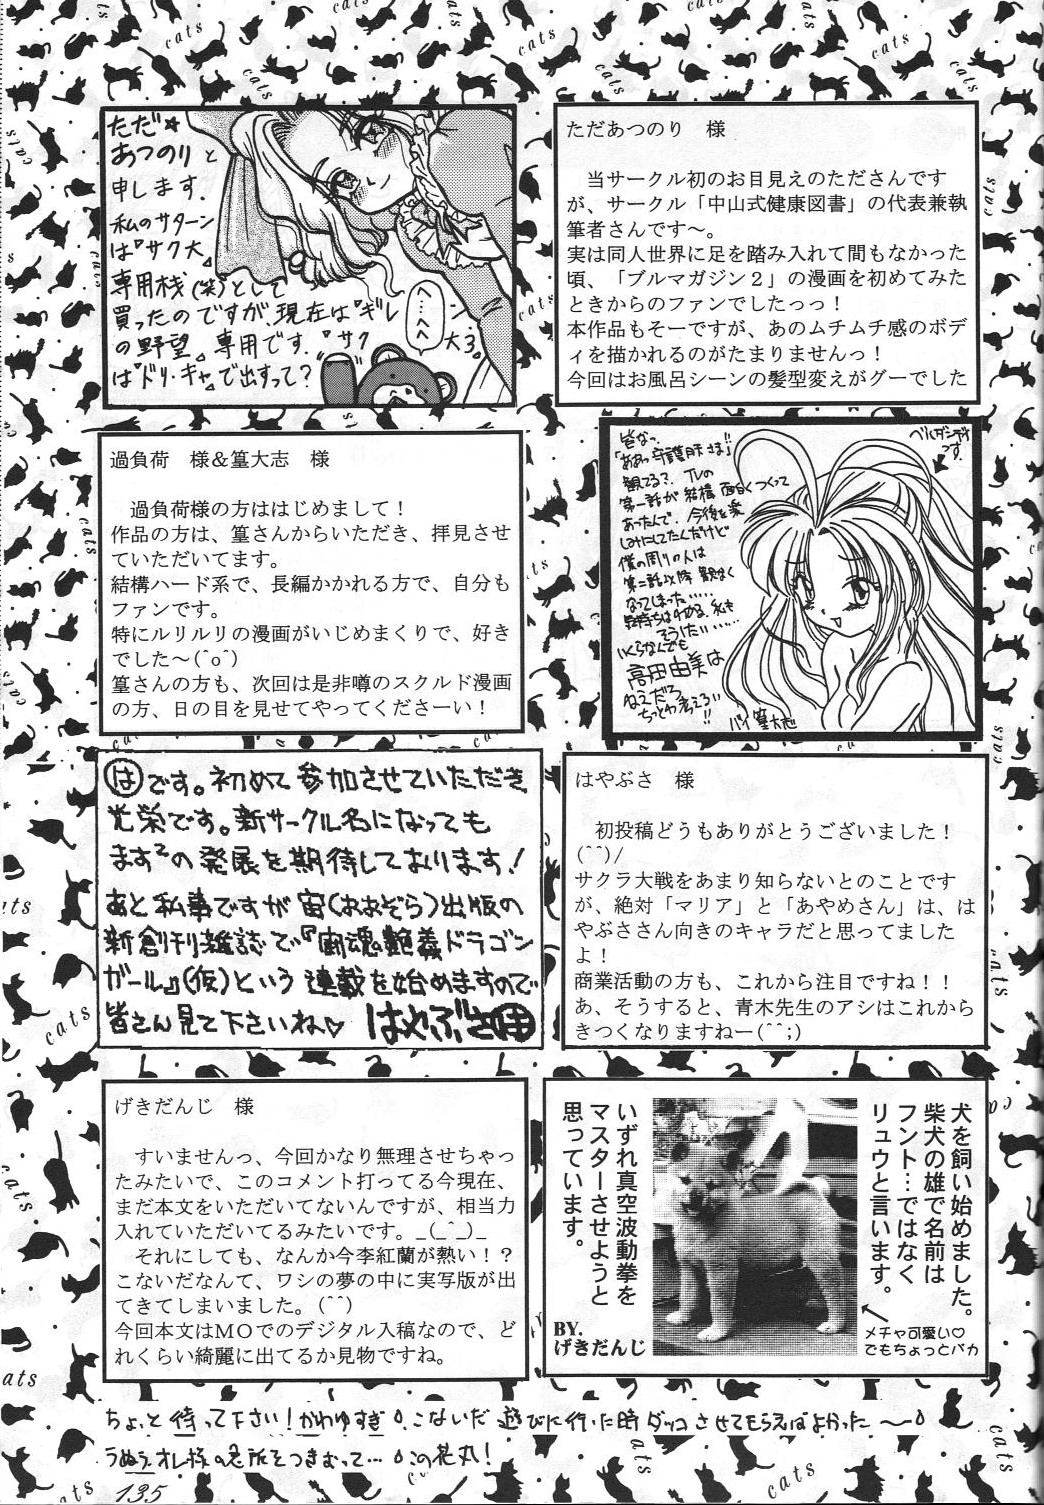 ただ★
あつのりと
申します.
私のサターン
は『サク大』
専用機(笑)として
買ったのですが、現在は『ギレン
の野望』専用です.『サク大3』
は『ドリ・キャ』で出すって?
へ…へへ
ただあつのり　様
　当サークル初のお目見えのたださんです
が、サークル「中山式健康図書」の代表兼執
筆者さんです～。
実は同人世界に足を踏み入れて間もなかった
頃、「ブルマガジン２」の漫画を初めてみた
ときからのファンでしたっっ！
本作品もそーですが、あのムチムチ感のボデ
ィを描かれるのがたまりませんっ！
今回はお風呂シーンの髪型変えがグーでした
過負荷　様＆篁大志　様
　過負荷様の方ははじめまして！
作品の方は、篁さんからいただき、拝見させ
ていただいてます。
結構ハード系で、長編かかれる方で、自分も
ファンです。
特にルリルリの漫画がいじめまくりで、好き
でした～(^o^)
篁さんの方も、次回は是非噂のスクルド漫画
の方、日の目を見せてやってくださーい！
皆なっ
「ああっ守護月天さま」!!
観てる?. TVの
第一話が結構面白くつくって
あったんで. 今後を楽
しみにしてたんだけど
僕の周りの人は
第二話以降観なく
なってしまった……
気持ちはわかる. 私も
そうしたい……
いくらなんでも
高田由美は
ねえだろ
ちっとわ考えろい!!
バイ篁大志
ベルダンディ
です.
(は)です。初めて参加させていただき
光栄です。新サークル名になっても
ます²の発展を期待しております!
あと私事ですが宙(おおぞら)出版の
新創刊雑誌で『宙魂艶義ドラゴン
ガール』(仮)という連載を始めますので
皆さん見て下さいね♡ はやぶさ
はやぶさ　様
　初投稿どうもありがとうございました！
(^^)/
サクラ大戦をあまり知らないとのことです
が、絶対「マリア」と「あやめさん」は、は
やぶささん向きのキャラだと思ってました
よ！
商業活動の方も、これから注目ですね！！
あ、そうすると、青木先生のアシはこれから
きつくなりますねー(^^;)
げきだんじ　様
　すいませんっ、今回かなり無理させちゃっ
たみたいで、このコメント打ってる今現在、
まだ本文をいただいてないんですが、相当力
入れていただいてるみたいです。_(_^_)_
　それにしても、なんか今李紅蘭が熱い！？
こないだなんて、ワシの夢の中に実写版が出
てきてしまいました。(^^)
今回本文はＭＯでのデジタル入稿なので、ど
れくらい綺麗に出てるか見物ですね。
犬を飼い始めました。
柴犬の雄で名前は
フント…ではなく
リュウと言います。
いずれ真空波動拳を
マスターさせようと
思っています。
BY.
げきだんじ
メチャ可愛い♡
でもちょっとバカ
ちょっと待って下さい!かわゆすぎ。こないだ遊びに行った時ダッコさせてもらえばよかった～。
うぬぅ、オレ様の急所をつきむって…。この花丸!
135
cats
cats
cats
cats
cats
cats
cats
cats
cats
cats
cats
cats
cats
cats